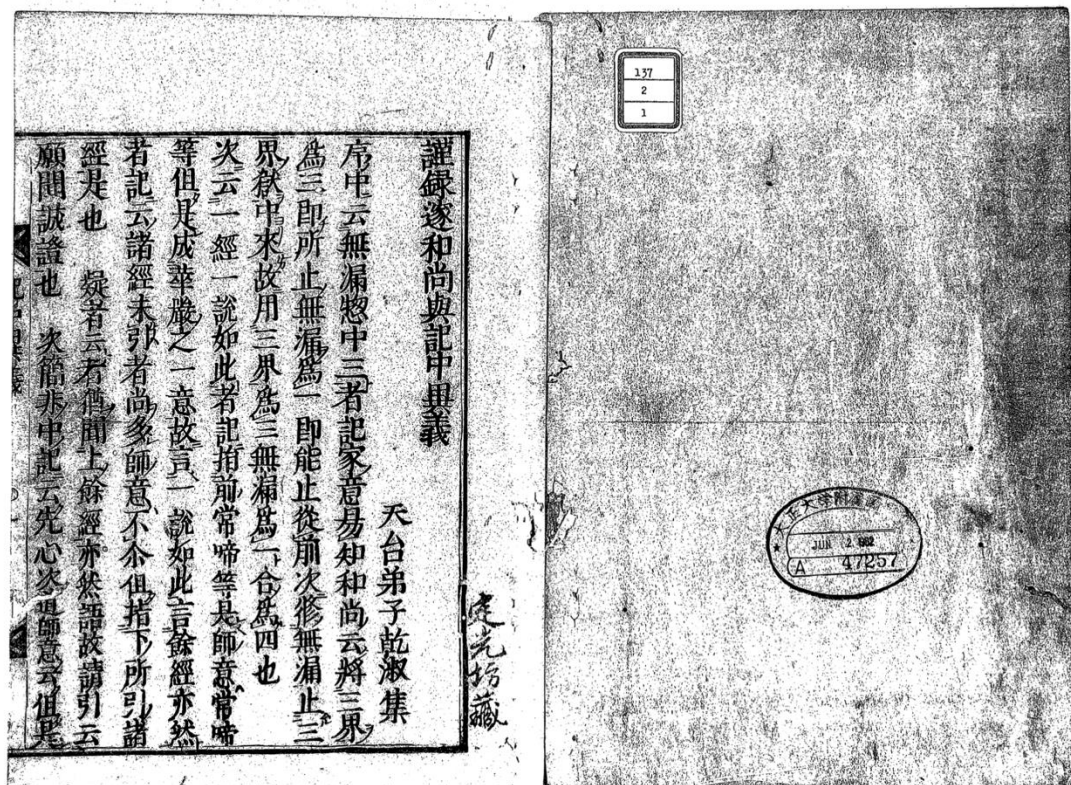 137
2
1
大正大学附
JUN 2
A 47257
坊藏
謹録邃和尚與記中異義
天台弟子乾淑集
序中云無漏惣中三者記家意易知和尚云將三界
爲三即所止無漏爲一即能止從前次修無漏止三
界獄中來故用三界爲三無漏爲一合爲四也
次云一經一説如此者記指前常啼等是師意常啼
等但是成華嚴之一意故言一説如此言餘經亦然
者記云諸經未引者尚多師意不尒但指下所引諸
經是也　疑者云者舊聞上餘經亦然語故請引云
願聞誠證也　次簡非中記云先心次道師意云但是